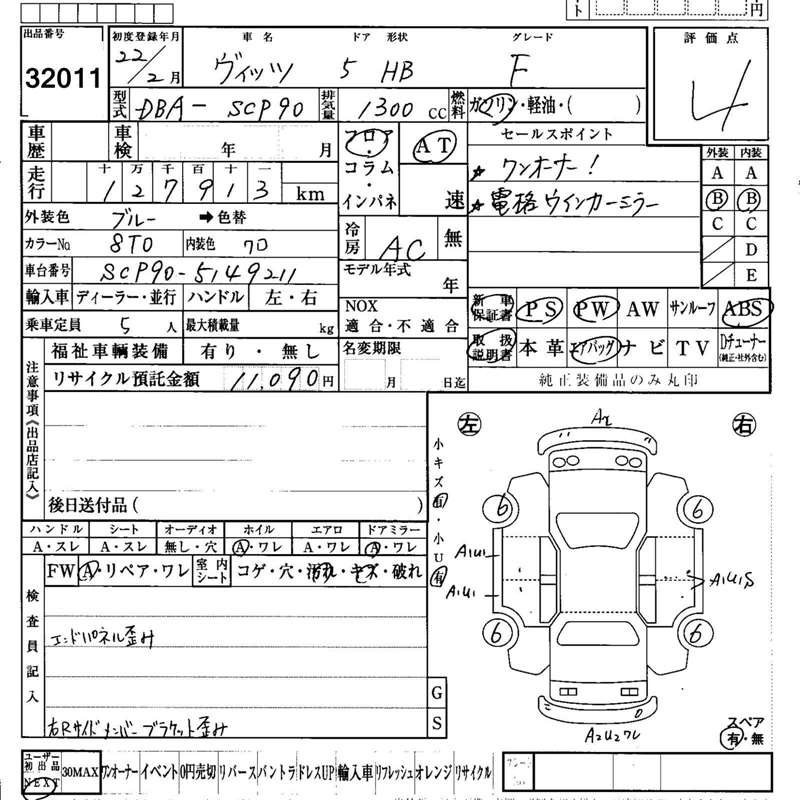 ト 円
出品番号 初度登録年月 車名 ドア 形状 グレード 評価点
32011 22/2月 ヴィッツ 5 HB F 4
型式 DBA- SCP90 排気量 1300 CC 燃料 ガソリン・軽油・( )
車歴 車検 年 月 フロア・コラム・インパネ AT 速 セールスポイント
走行 十万千百十一 127913 km
★ ワンオーナー!
★ 電格ウインカーミラー
外装 内装
A A
B B
C C
D
E
外装色 ブルー ➡色替
カラーNo 8T0 内装色 70 冷房 AC 無
車台番号 SCP90-5149211 モデル年式 年
輸入車 ディーラー・並行 ハンドル 左・右 NOX 適合・不適合
新車保証書 PS PW AW サンルーフ ABS
乗車定員 5人 最大積載量 kg
取扱説明書 本革 エアバッグ ナビ TV Dチューナー (純正・社外含む)
福祉車輌装備 有り・無し 名変期限 月 日迄
リサイクル預託金額 11,090円 純正装備品のみ丸印
注意事項《出品店記入》
後日送付品( )
小キズ有・小U有
左 右
A2
6 6
A1U1
A1U1
A1U1S
6 6
A2U2ワレ
スペア
有・無
ハンドル シート オーディオ ホイル エアロ ドアミラー
A・スレ A・スレ 無し・穴 A・ワレ A・ワレ A・ワレ
FW A・リペア・ワレ 室内シート コゲ・穴・汚れ・キズ・破れ
検査員記入
エンドパネル歪み
右Rサイドメンバーブラケット歪み
G
S
ユーザー初出品 NEXT 30MAX ワンオーナー イベント 0円売切 リバース バントラ ドレスUP 輸入車 リフレッシュ オレンジ リサイクル